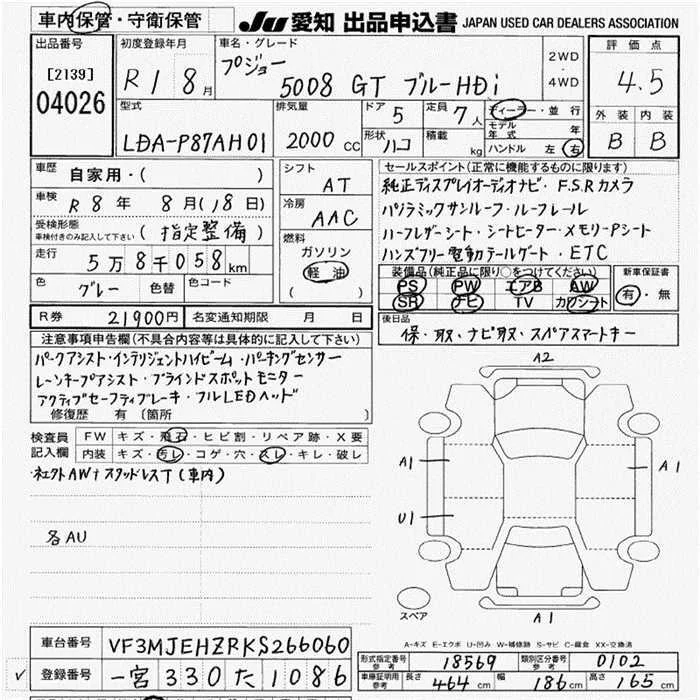 車内保管・守衛保管
JU 愛知 出品申込書 JAPAN USED CAR DEALERS ASSOCIATION
出品番号
[2139]
04026
初度登録年月
R1 8月
車名・グレード
プジョー
5008 GT ブルーHDi
2WD
・
4WD
評価点
4.5
外装 内装
B B
型式
LDA-P87AH01
排気量
2000 CC
ドア 5
形状 ハコ
定員 7人
積載 kg
ディーラー・並行
モデル年式 年
ハンドル 左 右
車歴 自家用・( )
車検 R8年 8月(18日)
受検形態
車検付きのみ記入して下さい (指定整備)
走行 5万8千058km
色 グレー 色替 色コード
シフト
AT
冷房
AAC
燃料
ガソリン
軽油
( )
セールスポイント(正常に機能するものに限ります)
純正ディスプレイオーディオナビ・F.S.Rカメラ
パノラミックサンルーフ・ルーフレール
ハーフレザーシート・シートヒーター・メモリーPシート
ハンズフリー電動テールゲート・ETC
装備品(純正品に限り○をつけてください)
PS PW エアB AW
SR ナビ TV カワシート
新車保証書
有・無
R券 21900円 名変通知期限 月 日
後日品
保・取・ナビ取・スペアスマートキー
注意事項申告欄(不具合内容等は具体的に記入して下さい)
パークアシスト・インテリジェントハイビーム・パーキングセンサー
レーンキープアシスト・ブラインドスポットモニター
アクティブセーフティブレーキ・フルLEDヘッド
修復歴 有 〔箇所 〕
検査員記入欄
FW キズ・飛石・ヒビ割・リペア跡・X要
内装 キズ・汚レ・コゲ・穴・スレ・キレ・破レ
ネクトAW+スタッドレスT(車内)
各AU
A2
A1
A1
U1
A1
スペア
A-キズ E-エクボ U-凹み W-補修跡 S-サビ C-腐食 XX-交換済
車台番号 VF3MJEHZRKS266060
登録番号 一宮330た1086
✓
形式指定番号 参考 18569 類別区分番号 参考 0102
車庫証明用 参考 長さ 464cm 幅 186cm 高さ 165cm